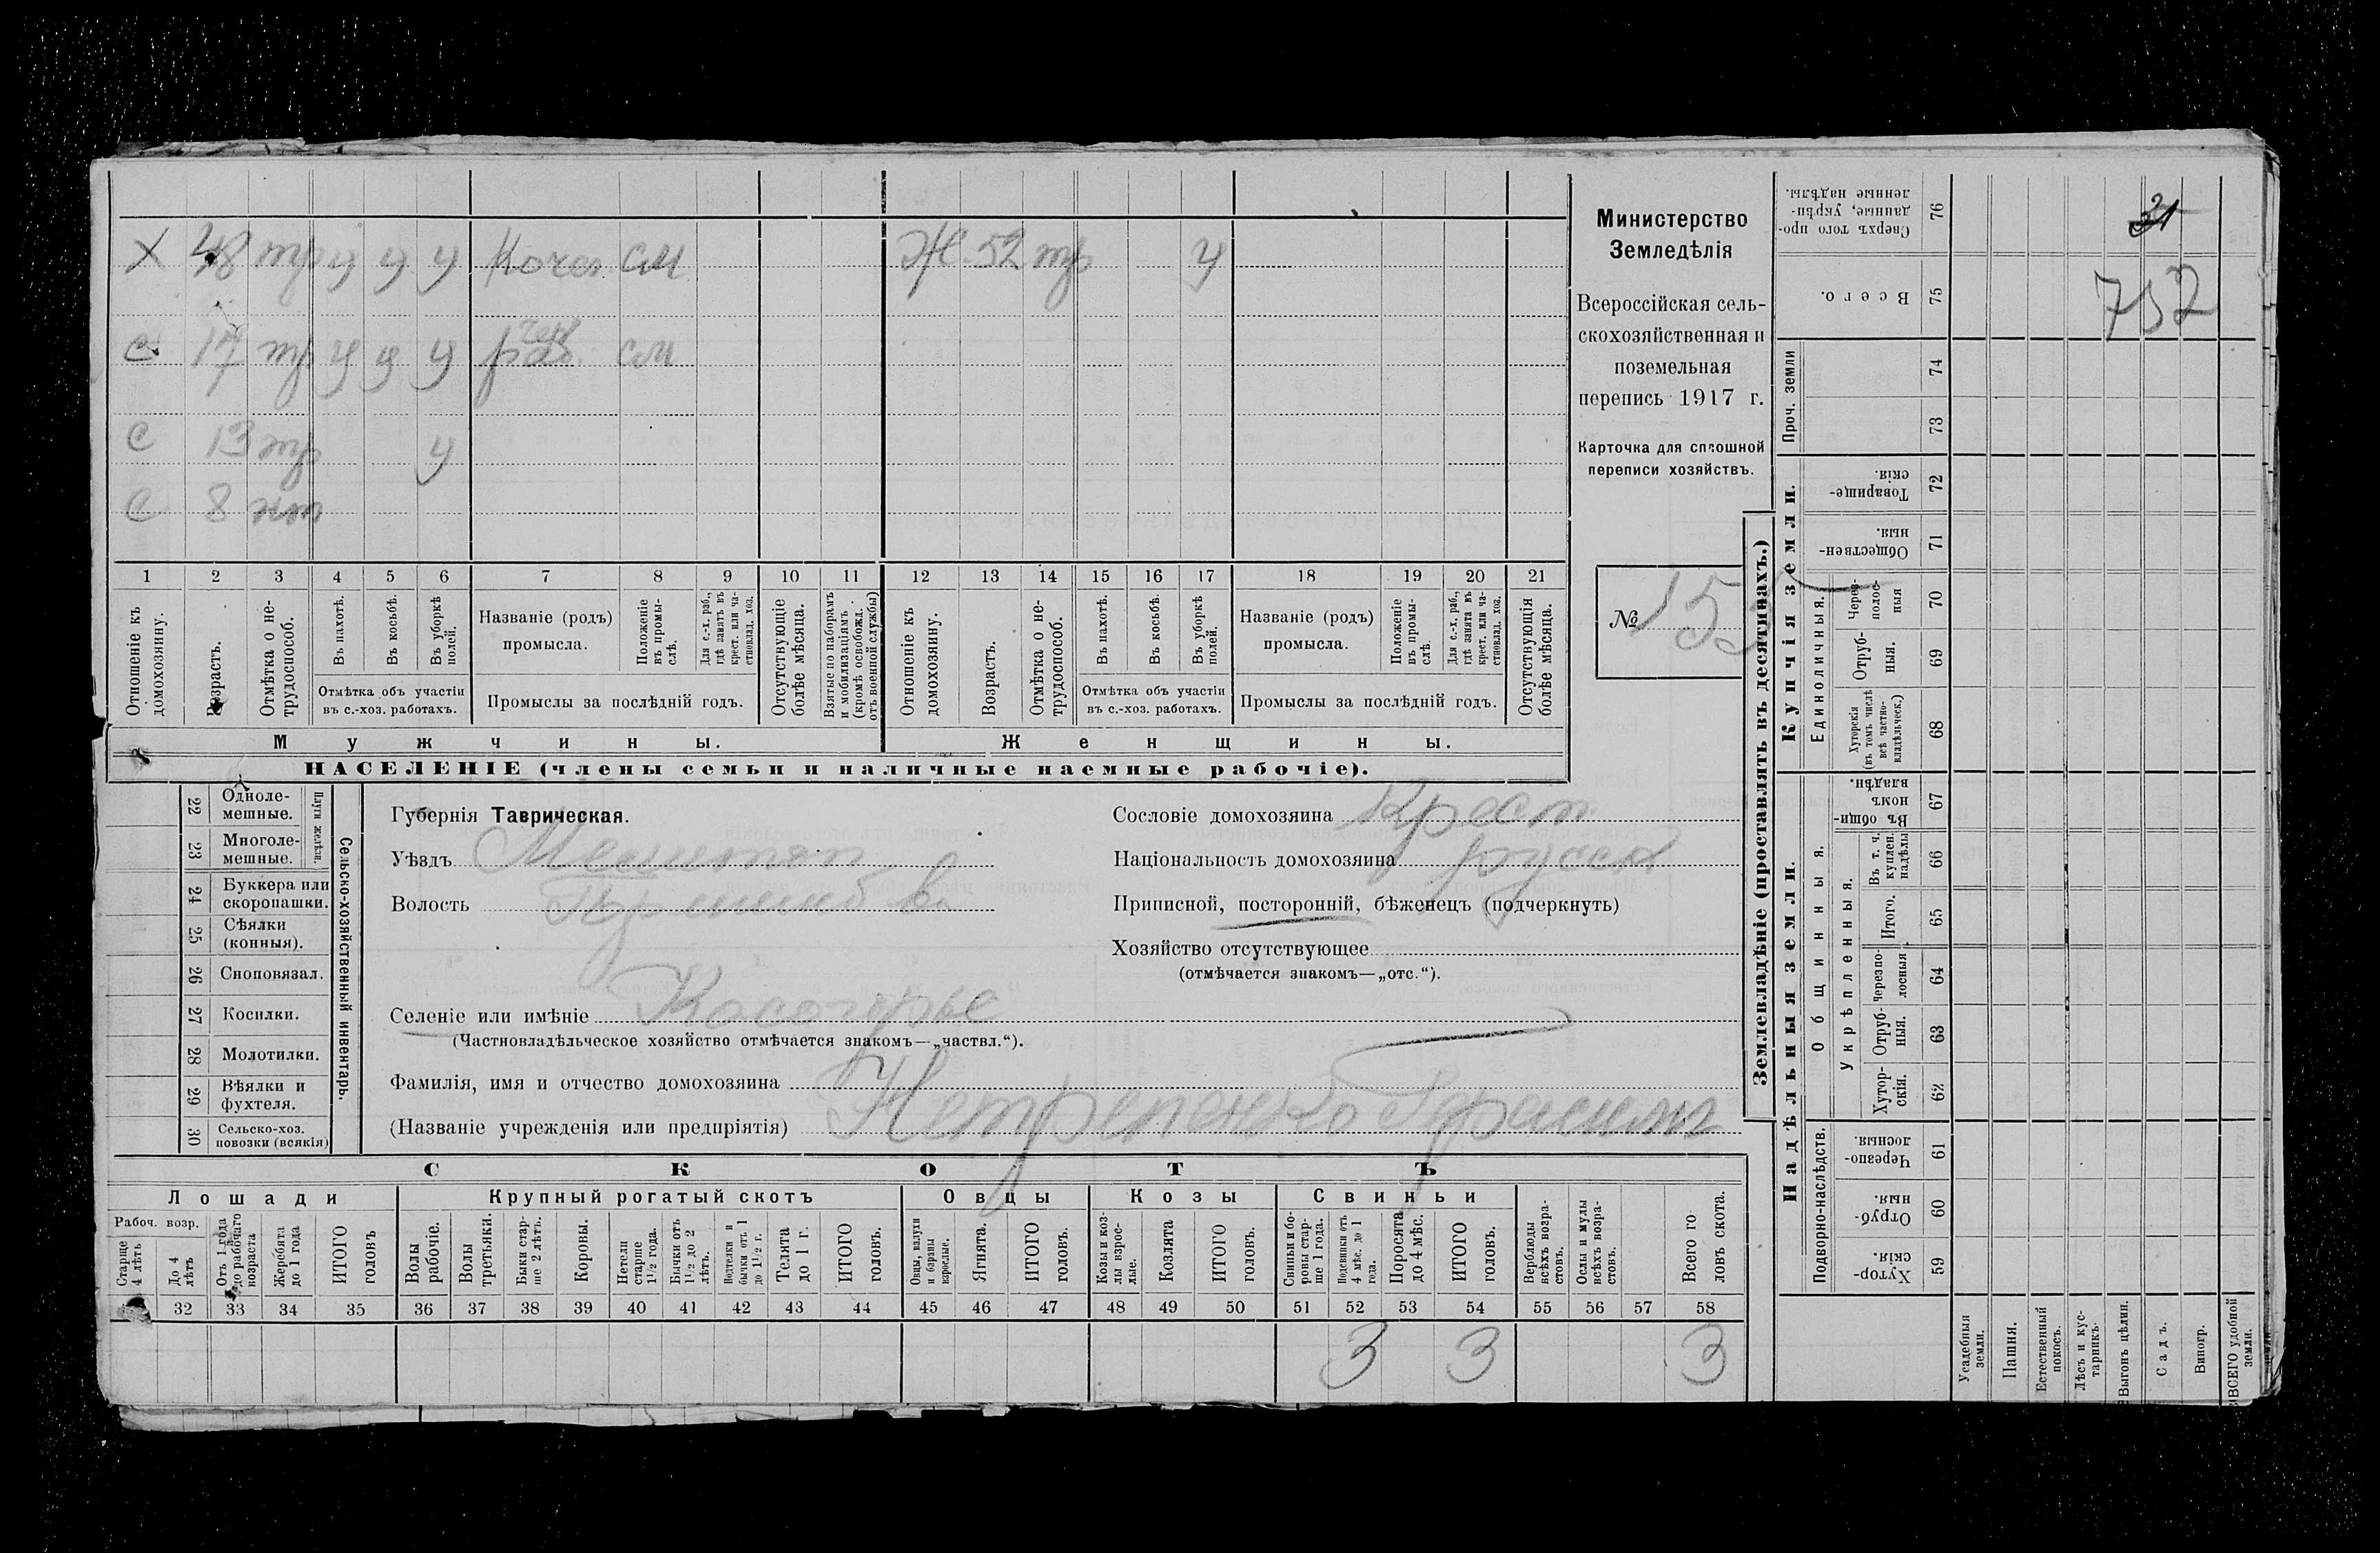 Х 48 тр у у у см Ж 52 тр у
С 17 тр у у у раб. см
С 13 тр у
С 8 нт
1 2 3 4 5 6 7 8 9 10 11 12 13 14 15 16 17 18 19 20 21
Отношеніе къ домохозяину.
Возрастъ.
Отмѣтка о не-
трудоспособ.
Въ пахотѣ.
Въ косьбѣ.
Въ уборкѣ
полей.
Отмѣтка объ участіи
въ с.-хоз. работахъ.
Названіе (родъ)
промысла.
Положеніе
въ промы-
слѣ.
Для с.-х. раб.,
гдѣ занятъ въ
крест. или ча-
стновлад. хоз.
Промыслы за послѣдній годъ.
Отсутствующіе
болѣе мѣсяца.
Взятые по наборамъ
и мобилизаціямъ
(кромѣ освобожд.
отъ военной службы)
Отношеніе къ
домохозяину.
Возрастъ.
Отмѣтка о не-
трудоспособ.
Въ пахотѣ.
Въ косьбѣ.
Въ уборкѣ
полей.
Отмѣтка объ участіи
въ с.-хоз. работахъ.
Названіе (родъ)
промысла.
Положеніе
въ промы-
слѣ.
Для с.-х. раб.,
гдѣ занята въ
крест. или ча-
стновлад. хоз.
Промыслы за послѣдній годъ.
Отсутствующія
болѣе мѣсяца.
Мужчины.
Женщины.
НАСЕЛЕНІЕ (члены семьи и наличные наемные рабочіе).
Министерство
Земледѣлія
Всероссійская сель-
скохозяйственная и
поземельная
перепись 1917 г.
Карточка для сплошной
переписи хозяйствъ.
№ 15
22 Одноле-
мешные.
23 Многоле-
мешные.
Плуги желѣзн.
24 Буккера или
скоропашки.
25 Сѣялки
(конныя).
26 Сноповязал.
27 Косилки.
28 Молотилки.
29 Вѣялки и
фухтеля.
30 Сельско-хоз.
повозки (всякія)
Сельско-хозяйственный инвентарь.
Губернія Таврическая.
Уѣздъ Мелитоп
Волость
Селеніе или имѣніе Косогорье
(Частновладѣльческое хозяйство отмѣчается знакомъ—„частвл.“).
Фамилія, имя и отчество домохозяина
(Названіе учрежденія или предпріятія) Нетрепенько Герасимъ
Сословіе домохозяина Крест.
Національность домохозяина русск
Приписной, посторонній, бѣженецъ (подчеркнуть)
Хозяйство отсутствующее
(отмѣчается знакомъ—„отс.“).
СКОТЪ
Лошади
Рабоч. возр.
Старше
4 лѣтъ
До 4
лѣтъ
Отъ 1 года
до рабочаго
возраста
Жеребята
до 1 года
ИТОГО
головъ
Крупный рогатый скотъ
Волы
рабочіе.
Волы
третьяки.
Быки стар-
ше 2 лѣтъ.
Коровы.
Нетели
старше
1½ года.
Бычки отъ
1½ до 2
лѣтъ.
Подтелки и
бычки отъ 1
до 1½ г.
Телята
до 1 г.
ИТОГО
головъ.
Овцы
Овцы, валухи
и бараны
взрослые.
Ягнята.
ИТОГО
головъ.
Козы
Козы и коз-
лы взрос-
лые.
Козлята
ИТОГО
головъ.
Свиньи
Свиньи и бо-
ровы стар-
ше 1 года.
Подсвинки отъ
4 мѣс. до 1
года.
Поросята
до 4 мѣс.
ИТОГО
головъ.
Верблюды
всѣхъ возра-
стовъ.
Ослы и мулы
всѣхъ возра-
стовъ.
Всего го
ловъ скота.
32 33 34 35 36 37 38 39 40 41 42 43 44 45 46 47 48 49 50 51 52 53 54 55 56 57 58
3 3 3
Землевладѣніе (проставлять въ десятинахъ.)
Купчія земли.
Надѣльныя земли.
Сверхъ того про-
данные, укрѣп-
ленные надѣлы.
76
Всего.
75
752
Проч. земли
74
73
Товарище-
скія.
72
Обществен-
ныя.
71
Единоличныя.
Через-
полос-
ныя
70
Отруб-
ныя.
69
Хуторскія
(въ томъ числѣ
всѣ частно-
владѣльческ.)
68
Общинныя.
Въ общин-
номъ
владѣн.
67
Укрѣпленныя.
Въ т. ч.
куплен.
надѣлы
66
Итого.
65
Черезпо-
лосныя
64
Отруб-
ныя.
63
Хутор-
скія.
62
Подворно-наслѣдств.
Черезпо-
лосныя.
61
Отруб-
ныя.
60
Хутор-
скія.
59
Усадебныя
земли.
Пашня.
Естественный
покосъ.
Лѣсъ и кус-
тарникъ.
Выгонъ цѣлин.
Садъ.
Виногр.
ВСЕГО удобной
земли.